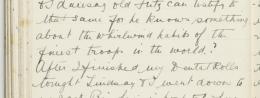 & Dawsay old Fritz can testify to
the same for he knows something
about the whirlwind habits of the
finest troops in the world?
After I finished my Dental Rolls
tonight Lindsay & I went down to